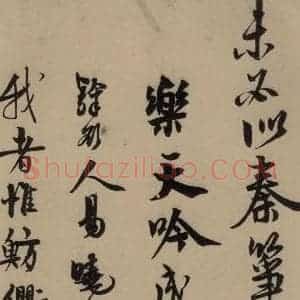 未必似秦箏
樂天吟成
人易曉
我者惟
Shufaziliao.com